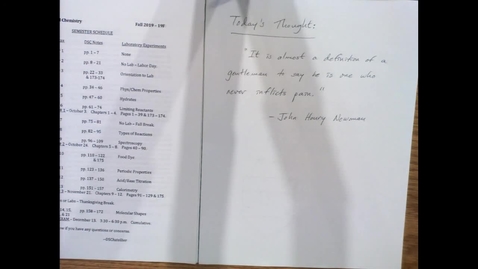 Chemistry Fall 2019 – 19F
SEMESTER SCHEDULE
TSC Notes Laboratory Experiments
pp. 1 – 7 None
pp. 8 – 21 No Lab – Labor Day
pp. 22 – 33 Orientation to Lab
& 173-174
pp. 34 – 46 Phys/Chem Properties
pp. 47 – 60 Hydrates
pp. 61 – 74 Limiting Reactants
October 3. Chapters 1 – 4. Pages 1 – 59 & 173 – 174
pp. 75 – 81 No Lab – Fall Break
pp. 82 – 95 Types of Reactions
pp. 96 – 109 Spectroscopy
pp. 110 – 122 Food Dye
& 175
pp. 123 – 136 Periodic Properties
pp. 137 – 150 Acid/Base Titration
pp. 151 – 157 Calorimetry
No Labs – Thanksgiving Break
pp. 158 – 172 Molecular Shapes
if you have any questions or concerns.
Today's Thought:
"It is almost a definition of a
gentleman to say he is one who
never inflicts pain."
– John Henry Newman